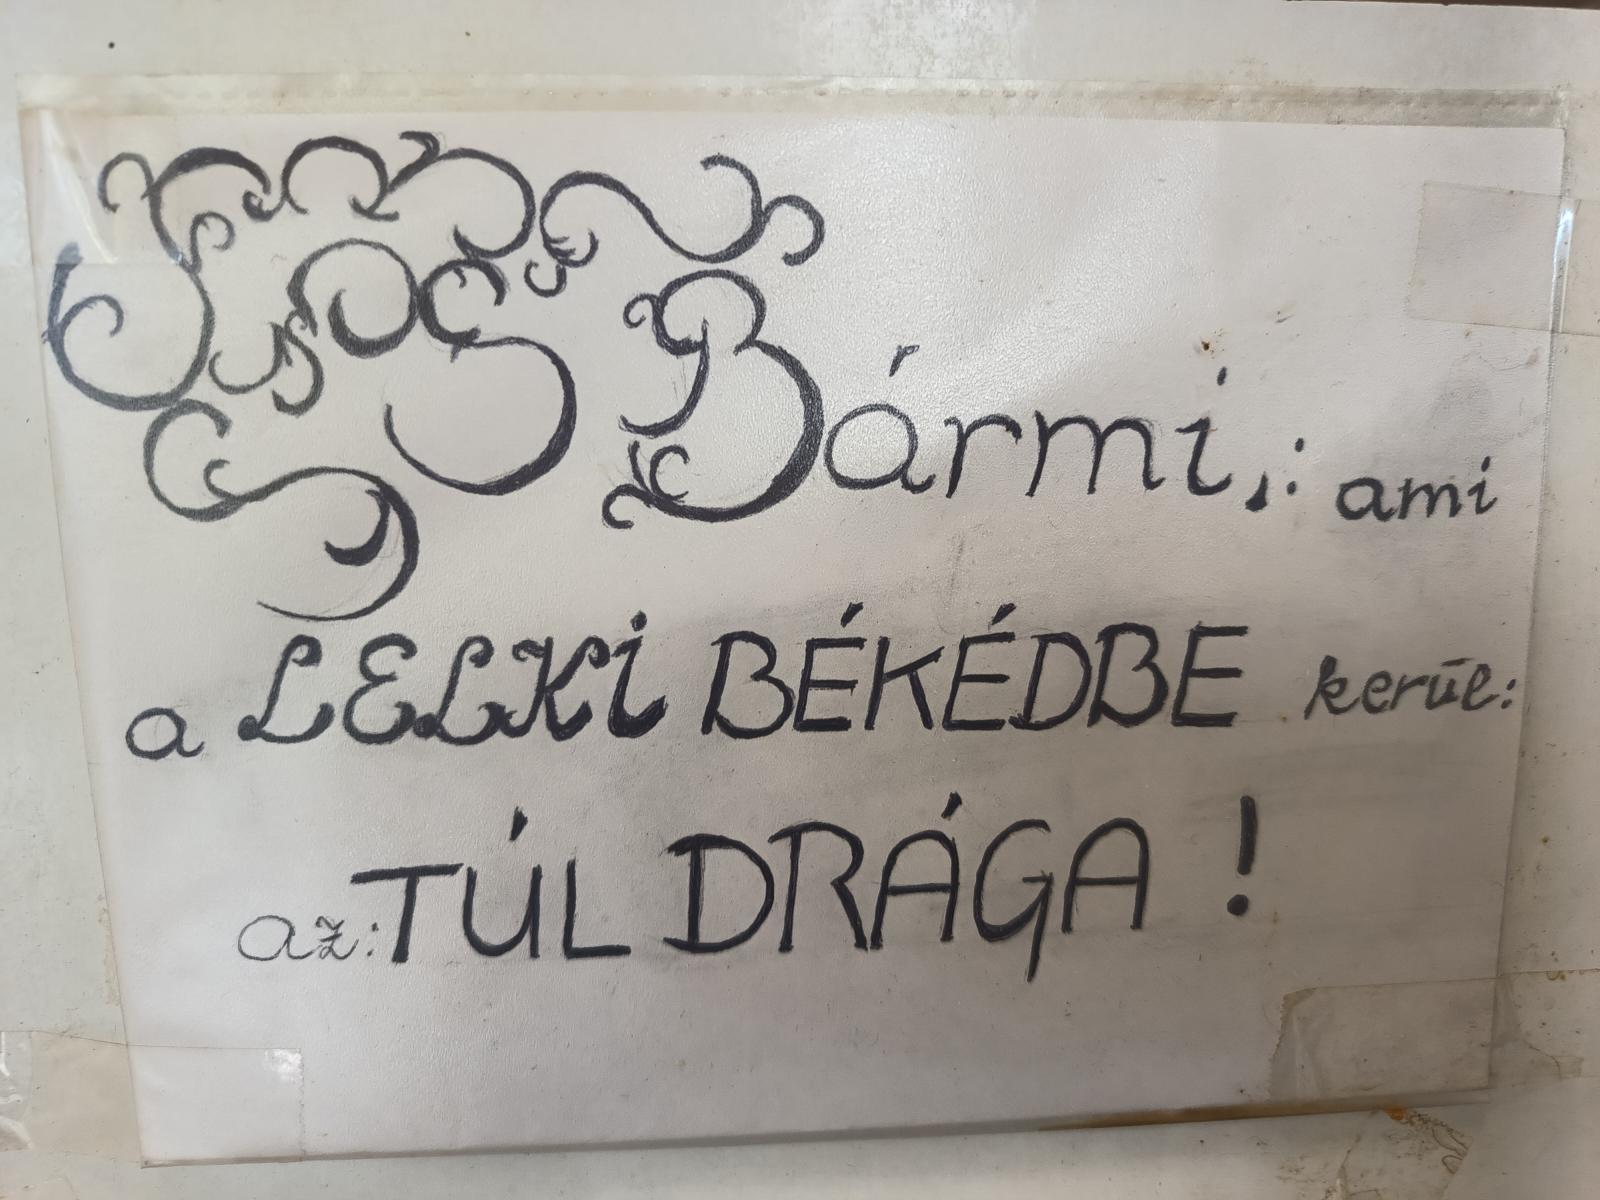 Bármi,: ami
a LELKi BÉKÉDBE kerül:
az: TÚL DRÁGA!